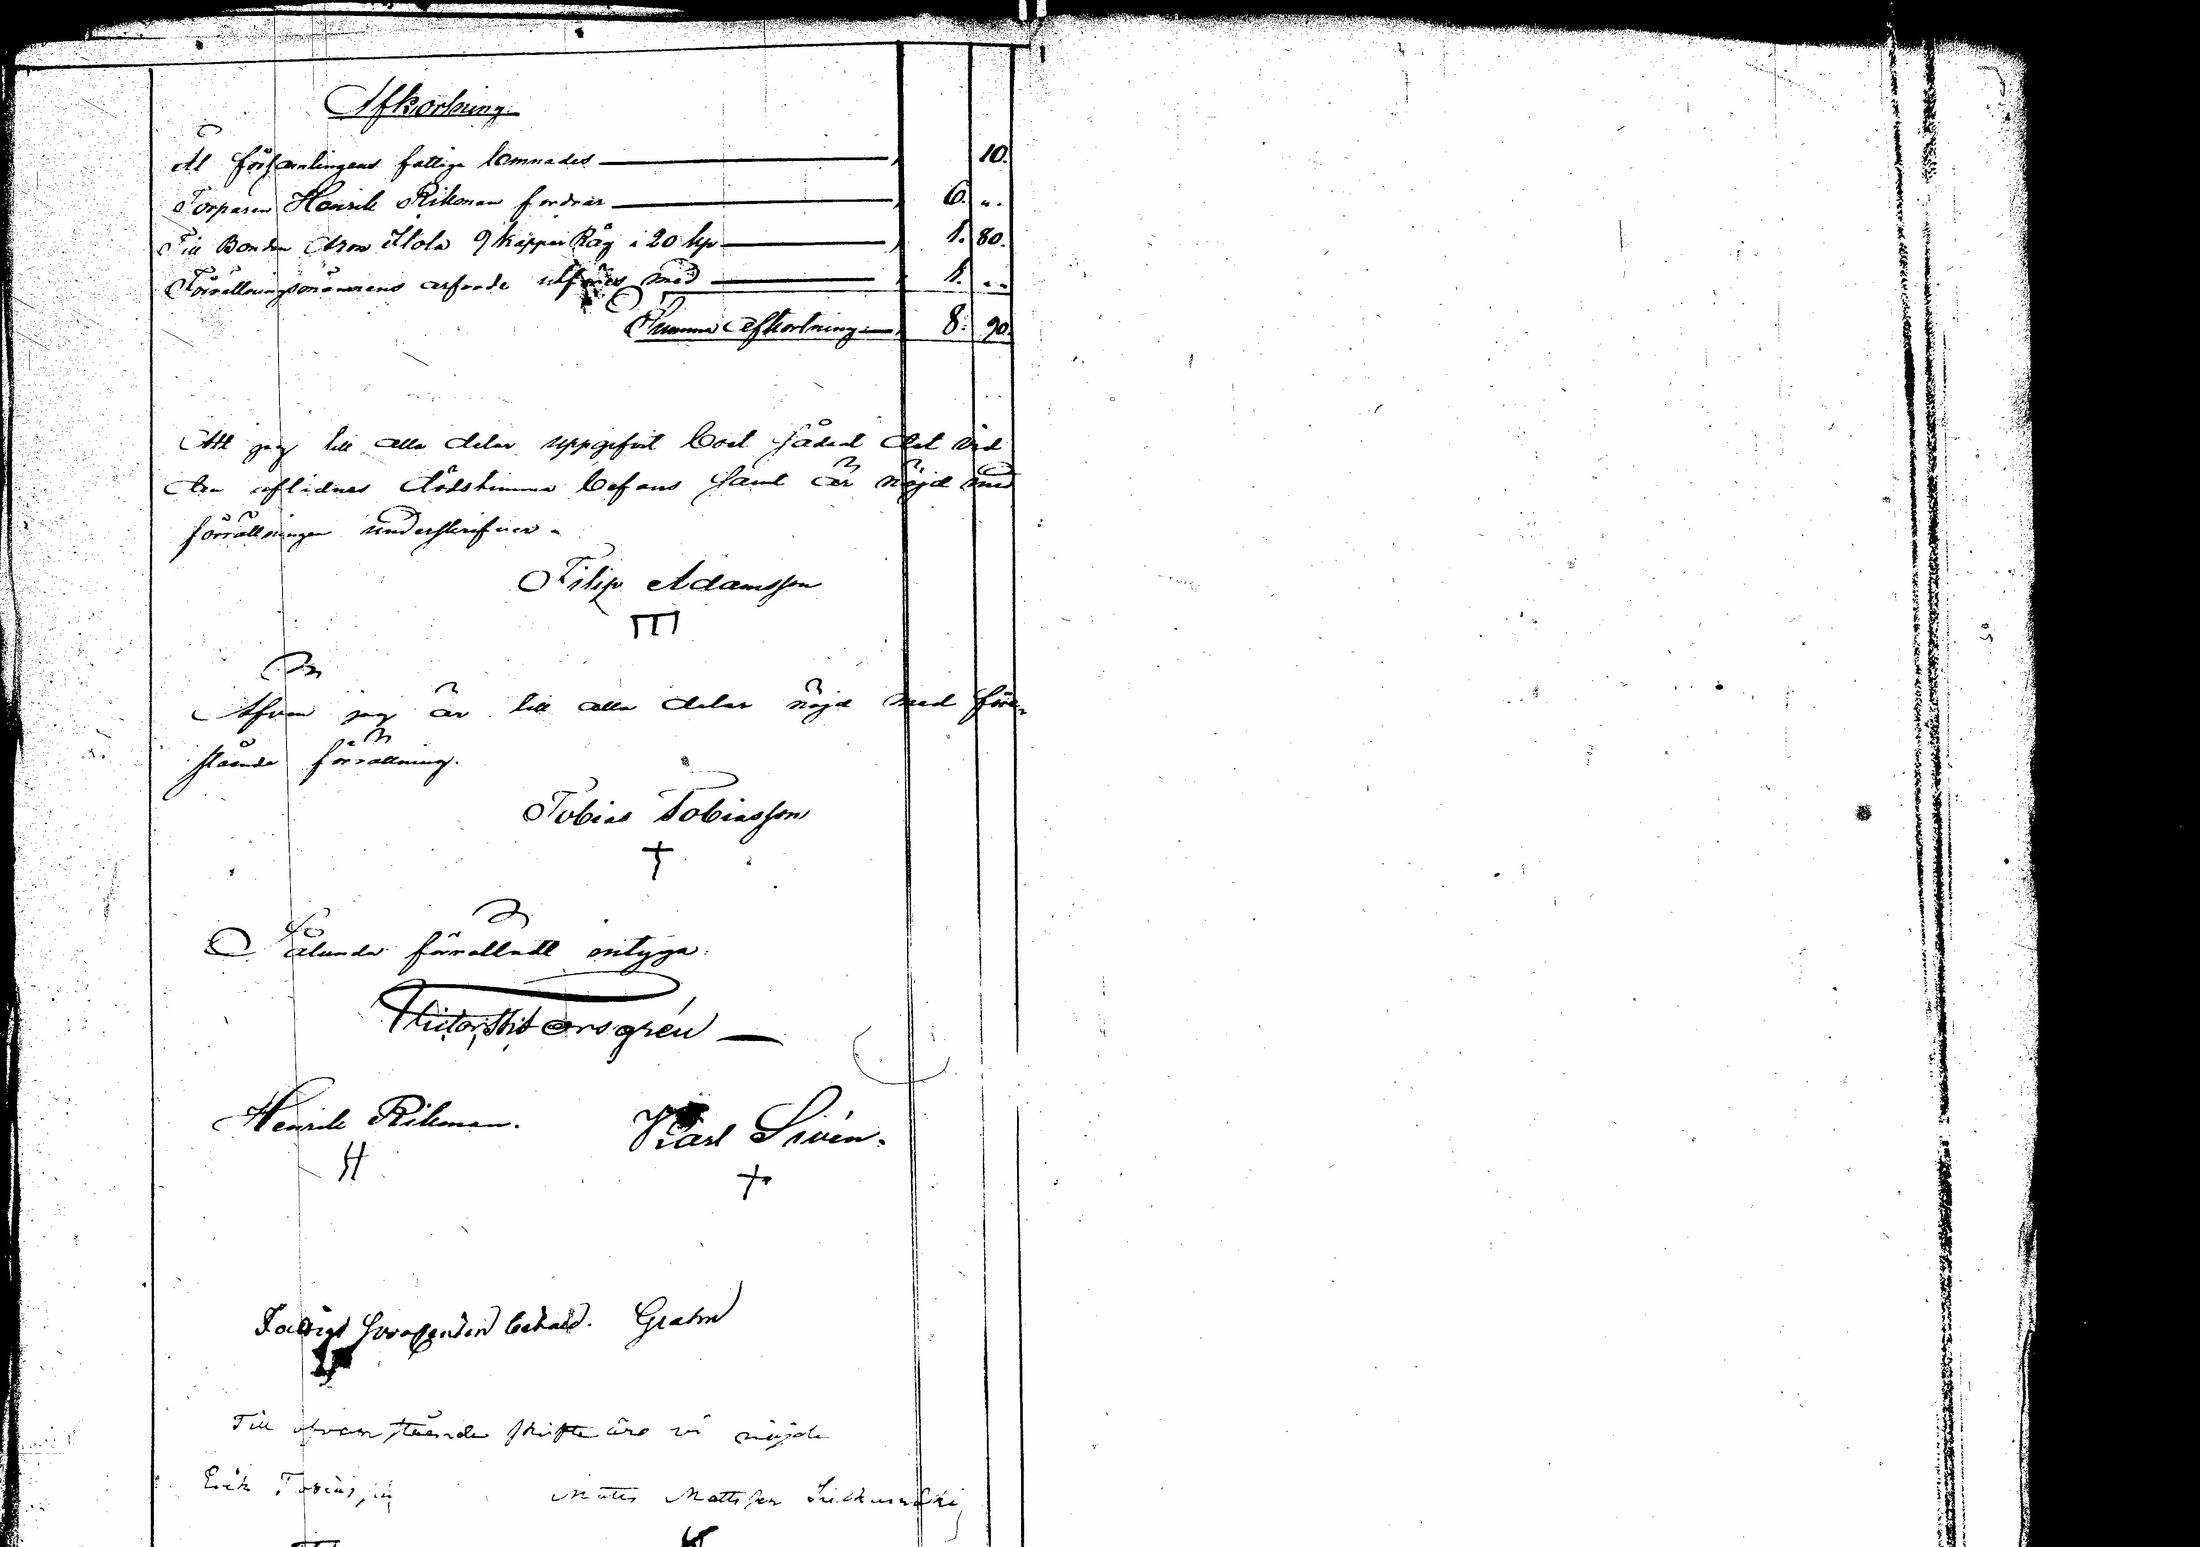 Afkortning
At församlingens fattige lemnades 10.
Torparen Henrik Rikman fordrar 6. „.
Till Bonden Aron Ilola 9 kappar Råg à 20 kp 1. 80.
Förrättningsmännens arfvode utföres med 1. „.
Summa afkortning 8. 90.
Att jag till alla delar uppgifvit boet sådant det vid
den aflidnes dödstimma befans samt är nöjd med
förrättningen underskrifver.
Filip Adamsson
Äfven jag är till alla delar nöjd med före-
stående förrättning.
Tobias Tobiasson
Sålunda förrättadt intyga.
Henrik Rikman. Karl Sivén.
Fattigt procenten betald. Grahn
Till ofvanstående skifte äro vi nöjde
Erik Matts Mattsson